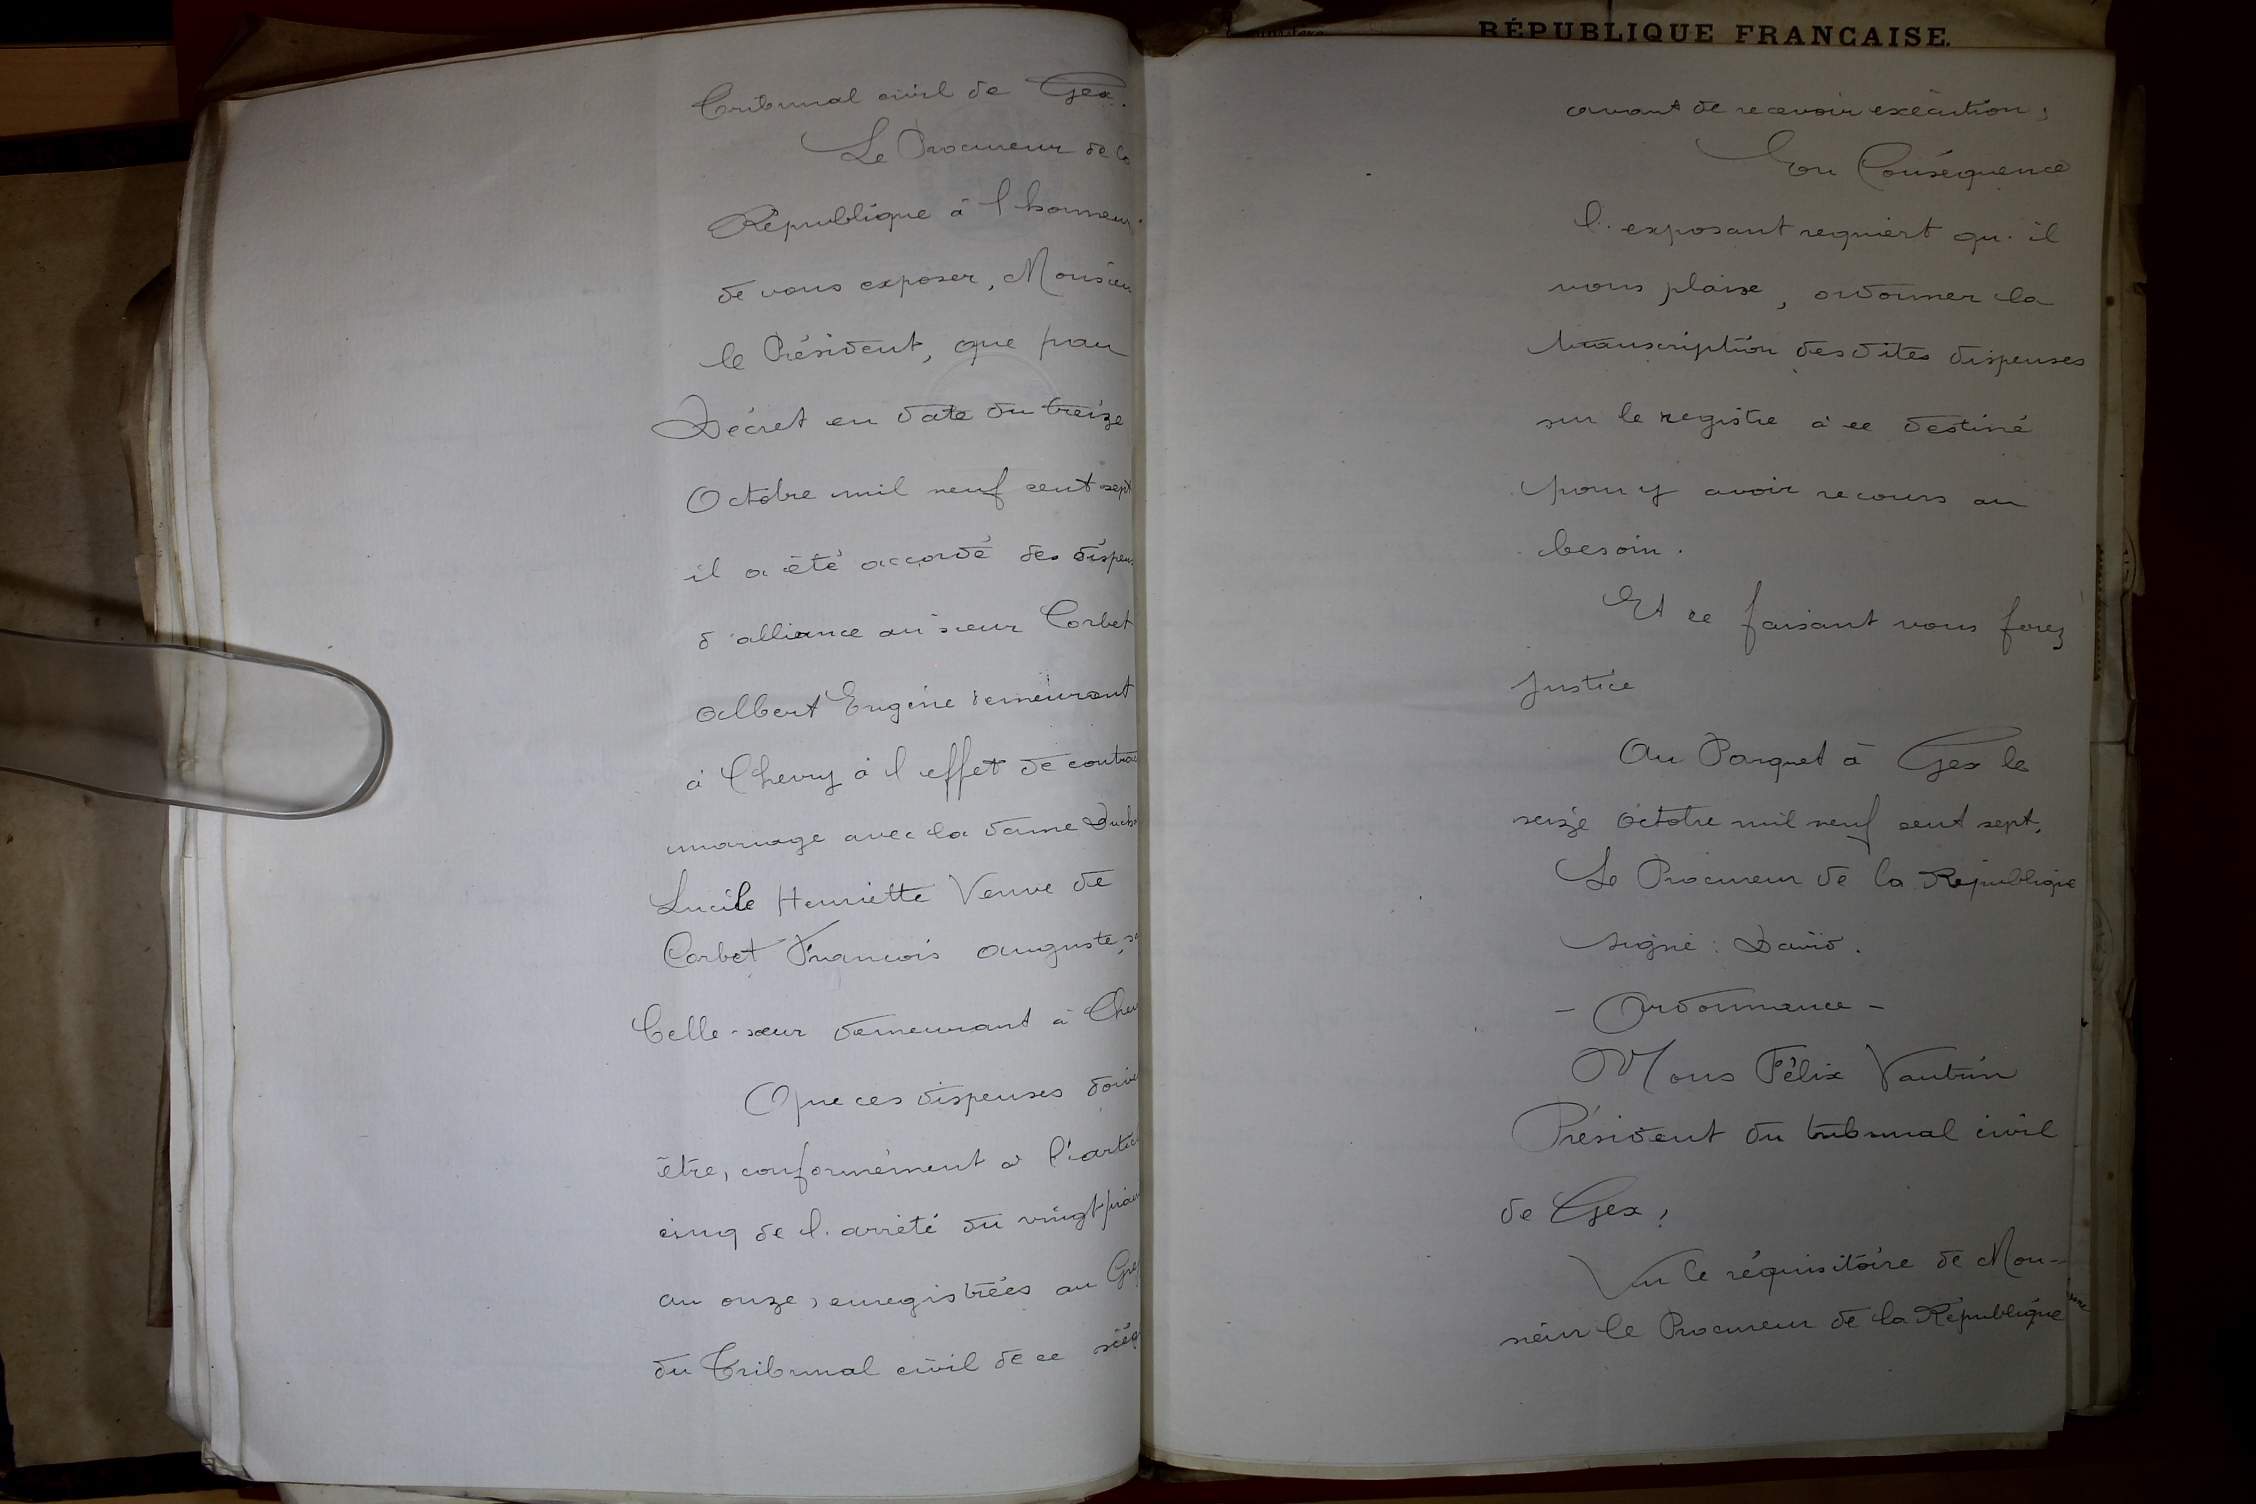 Tribunal civil de Gex.
Le Procureur de la
République à l'honneur
de vous exposer, Monsieu
le Président, que par
Décret en date du treize
Octobre mil neuf cent sept
il a été accordé des dispen
d'alliance au sieur Corbet
Albert Eugène demeurant
à Chevry à l'effet de contrac
mariage avec la dame
Lucile Henriette Veuve de
Corbet François Auguste, sa
belle-sœur demeurant à Chev
Que ces dispenses doive
être, conformément à l'artic
cinq de l'arrêté du vingt prair
an onze, enregistrées au Gref
du Tribunal civil de ce sièg
RÉPUBLIQUE FRANÇAISE.
avant de recevoir exécution;
En Conséquence
l'exposant requiert qu'il
vous plaise, ordonner la
transcription desdites dispenses
sur le registre à ce destiné
pour y avoir recours au
besoin.
Et ce faisant vous ferez
justice
Au Parquet à Gex le
seize Octobre mil neuf cent sept.
Le Procureur de la République
signé: David.
- Ordonnance -
Nous Félix Vautrin
Président du tribunal civil
de Gex,
Vu le réquisitoire de Mon-
sieur le Procureur de la République